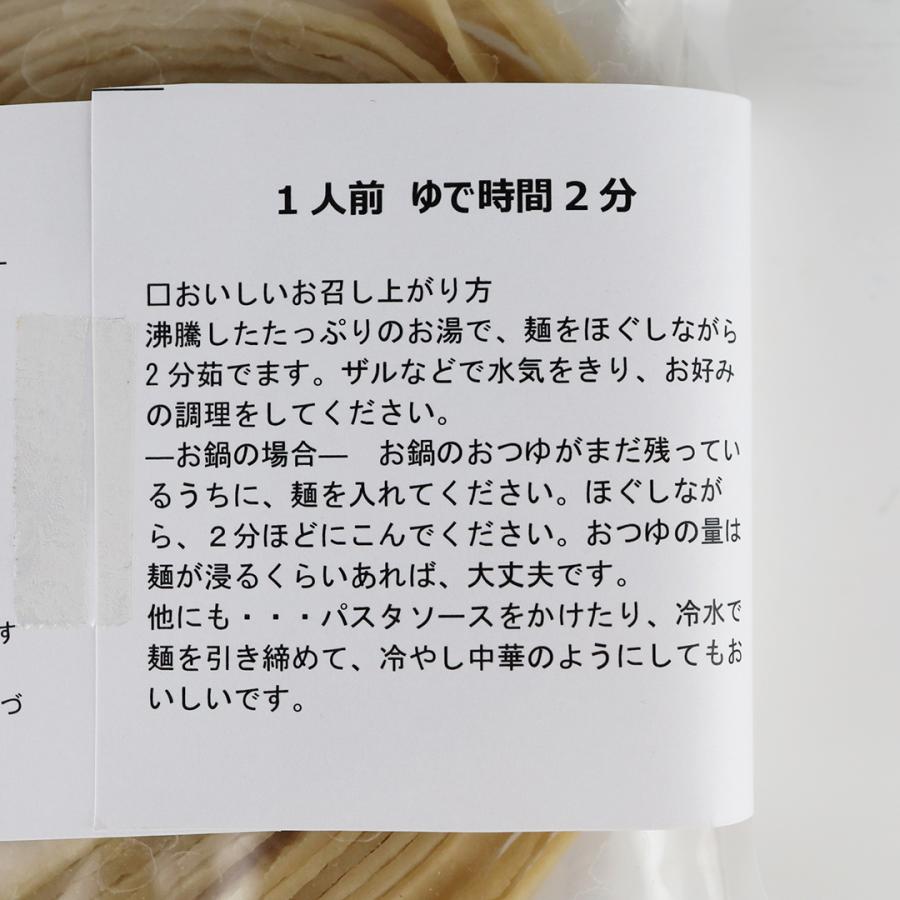 1人前 ゆで時間2分
□おいしいお召し上がり方
沸騰したたっぷりのお湯で、麺をほぐしながら
2分茹でます。ザルなどで水気をきり、お好み
の調理をしてください。
―お鍋の場合―　お鍋のおつゆがまだ残ってい
るうちに、麺を入れてください。ほぐしなが
ら、２分ほどにこんでください。おつゆの量は
麺が浸るくらいあれば、大丈夫です。
他にも・・・パスタソースをかけたり、冷水で
麺を引き締めて、冷やし中華のようにしてもお
いしいです。
す
づ